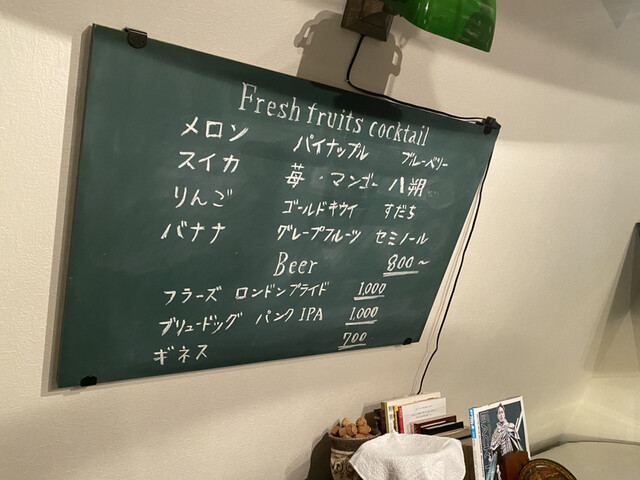 Fresh fruits cocktail
メロン パイナップル ブルーベリー
スイカ 苺・マンゴー 八朔
りんご ゴールドキウイ すだち
バナナ グレープフルーツ セミノール
Beer 800～
フラーズ ロンドンプライド 1,000
ブリュードッグ パンクIPA 1,000
ギネス 700